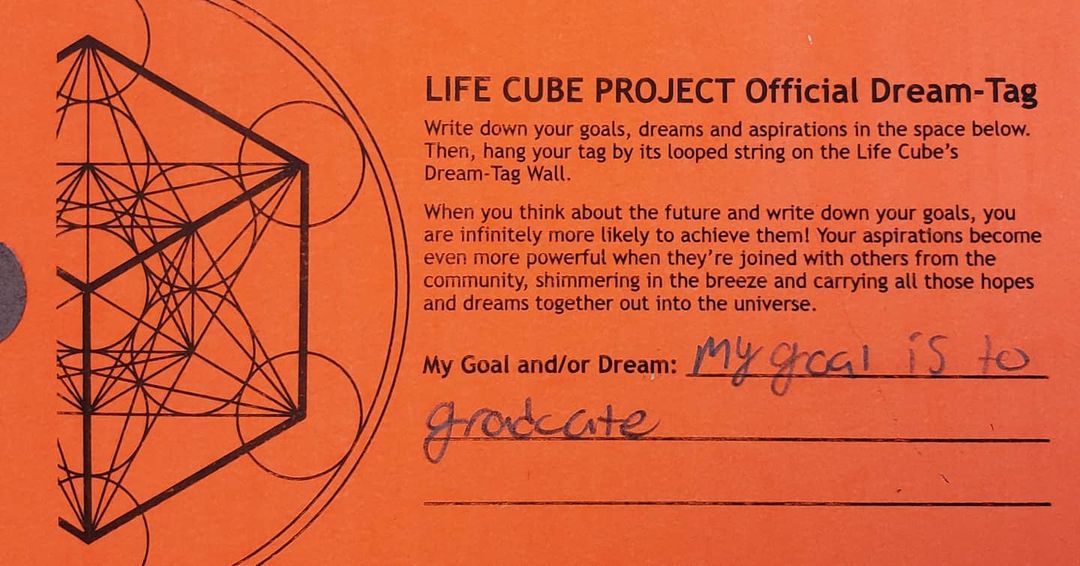 LIFE CUBE PROJECT Official Dream-Tag
Write down your goals, dreams and aspirations in the space below.
Then, hang your tag by its looped string on the Life Cube's
Dream-Tag Wall.
When you think about the future and write down your goals, you
are infinitely more likely to achieve them! Your aspirations become
even more powerful when they're joined with others from the
community, shimmering in the breeze and carrying all those hopes
and dreams together out into the universe.
My Goal and/or Dream: My goal is to
graduate